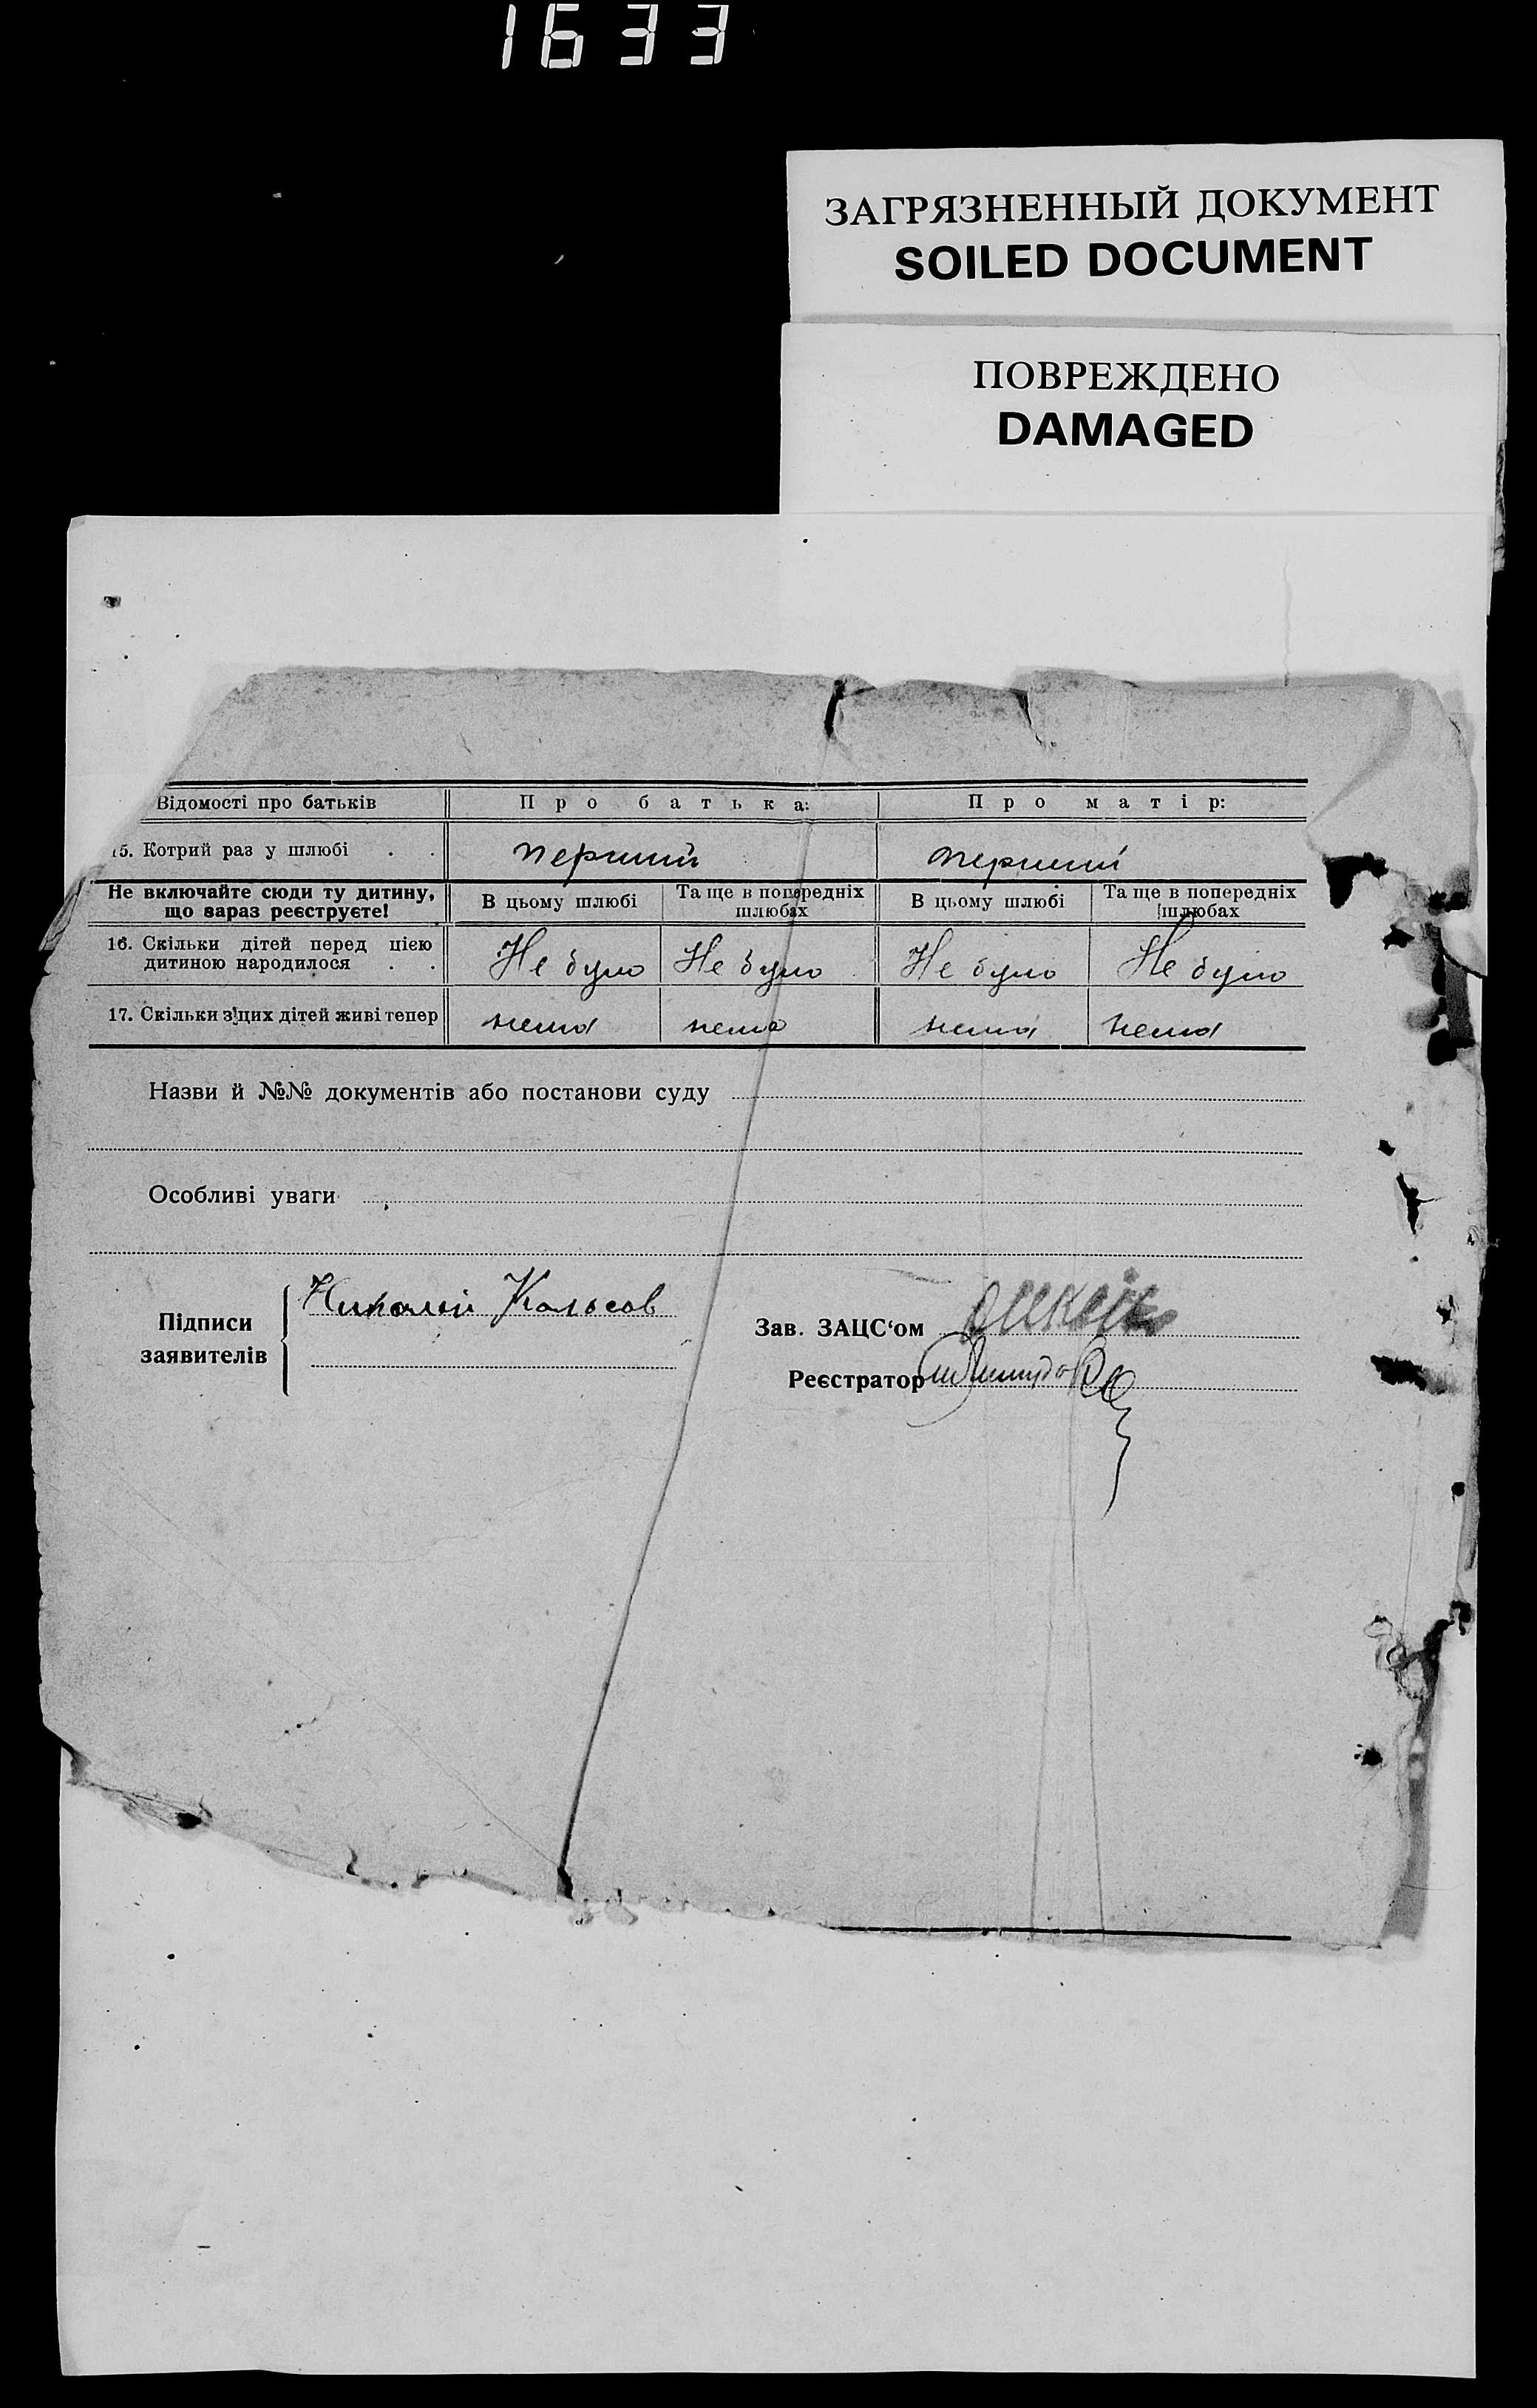 1633
ЗАГРЯЗНЕННЫЙ ДОКУМЕНТ
SOILED DOCUMENT
ПОВРЕЖДЕНО
DAMAGED
Відомості про батьків Про батька: Про матір:
15. Котрий раз у шлюбі . . перший перший
Не включайте сюди ту дитину, що зараз реєструєте! В цьому шлюбі Та ще в попередніх шлюбах В цьому шлюбі Та ще в попередніх шлюбах
16. Скільки дітей перед цією дитиною народилося . . Не було Не було Не було Не було
17. Скільки з цих дітей живі тепер нема нема нема нема
Назви й №№ документів або постанови суду
Особливі уваги
Підписи заявителів Николай Колосов
Зав. ЗАЦС‘ом
Реєстратор